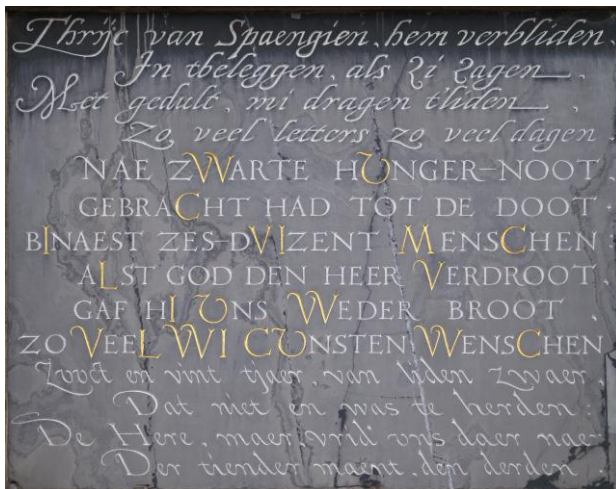 Thrijc van Spaengien, hem verbliden
In tbeleggen, als Zi Zagen
Met gedult, mi dragen tliden,
Zo veel letters zo veel dagen.
NAE ZWARTE HUNGER-NOOT.
GEBRACHT HAD TOT DE DOOT
BINAEST ZES-DVIZENT MENSCHEN
ALST GOD DEN HEER VERDROOT
GAF HI UNS WEDER BROOT.
ZO VEEL WI CUNSTEN WENSCHEN
Zouct en vint tjaer, van liden zwaer,
Dat niet en was te herden:
De Here, maer, vrili vns daer nae
Der tiender maent, den derden.